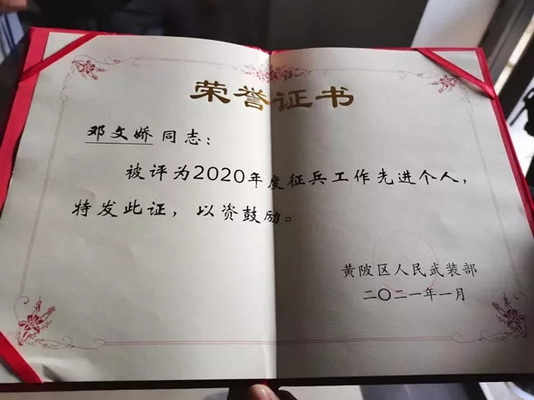 荣誉证书
邓文娇同志：
被评为2020年度征兵工作先进个人，
特发此证，以资鼓励。
黄陂区人民武装部
二〇二一年一月